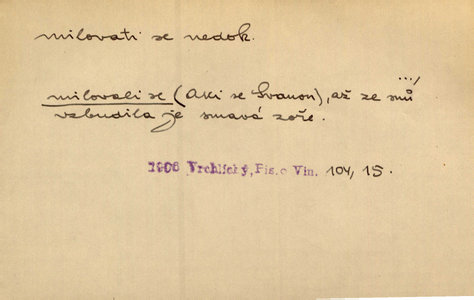 milovati se nedok.
.../
milovali se (Aki se Svanon), až ze snů
vzbudila je smavá zoře.
1906 Vrchlický, Pís. o Vin. 104, 15.